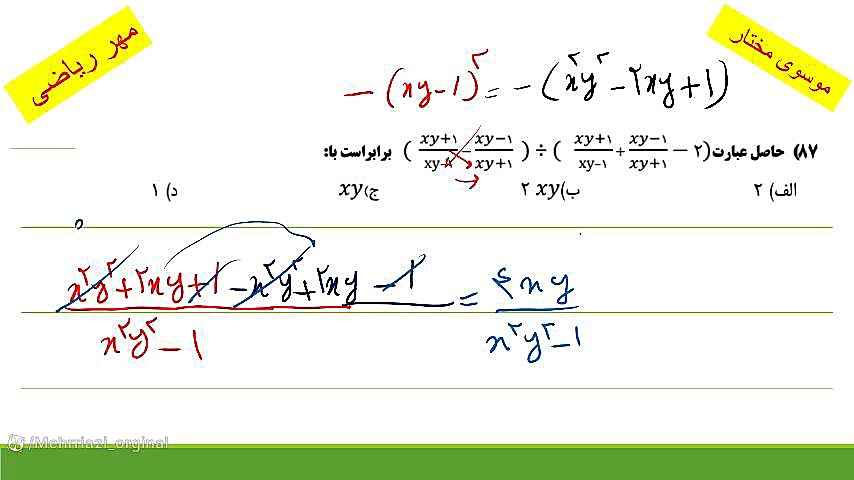 مهر ریاضی
موسوی مختار
− (xy − 1)^۲ = − (x^۲y^۲ − ۲xy + 1)
۸۷) حاصل عبارت (۲ − (xy−۱)/(xy+۱) + (xy+۱)/(xy-۱)) ÷ ((xy+۱)/(xy-۱) − (xy−۱)/(xy+۱)) برابراست با:
الف) ۲ ب) ۲ xy ج) xy د) ۱
(x^۲y^۲ + ۲xy + 1 − x^۲y^۲ + ۲xy − 1)/(x^۲y^۲ − 1) = ۴xy/(x^۲y^۲ − 1)
/Mehrriazi_orginal